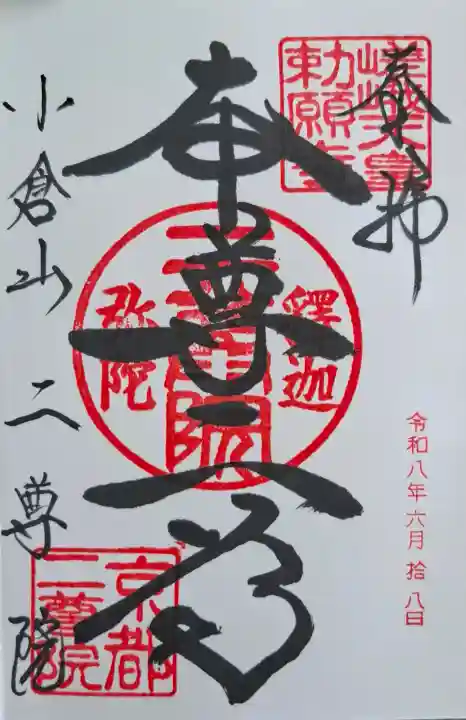 奉拝
嵯峨天皇
勅願寺
本尊二尊
釋迦
二尊院
弥陀
令和八年六月拾八日
小倉山二尊院
京都
二尊院